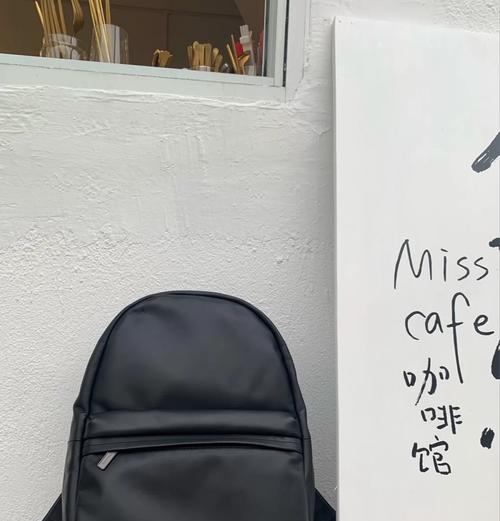 Miss
cafe
咖
啡
馆